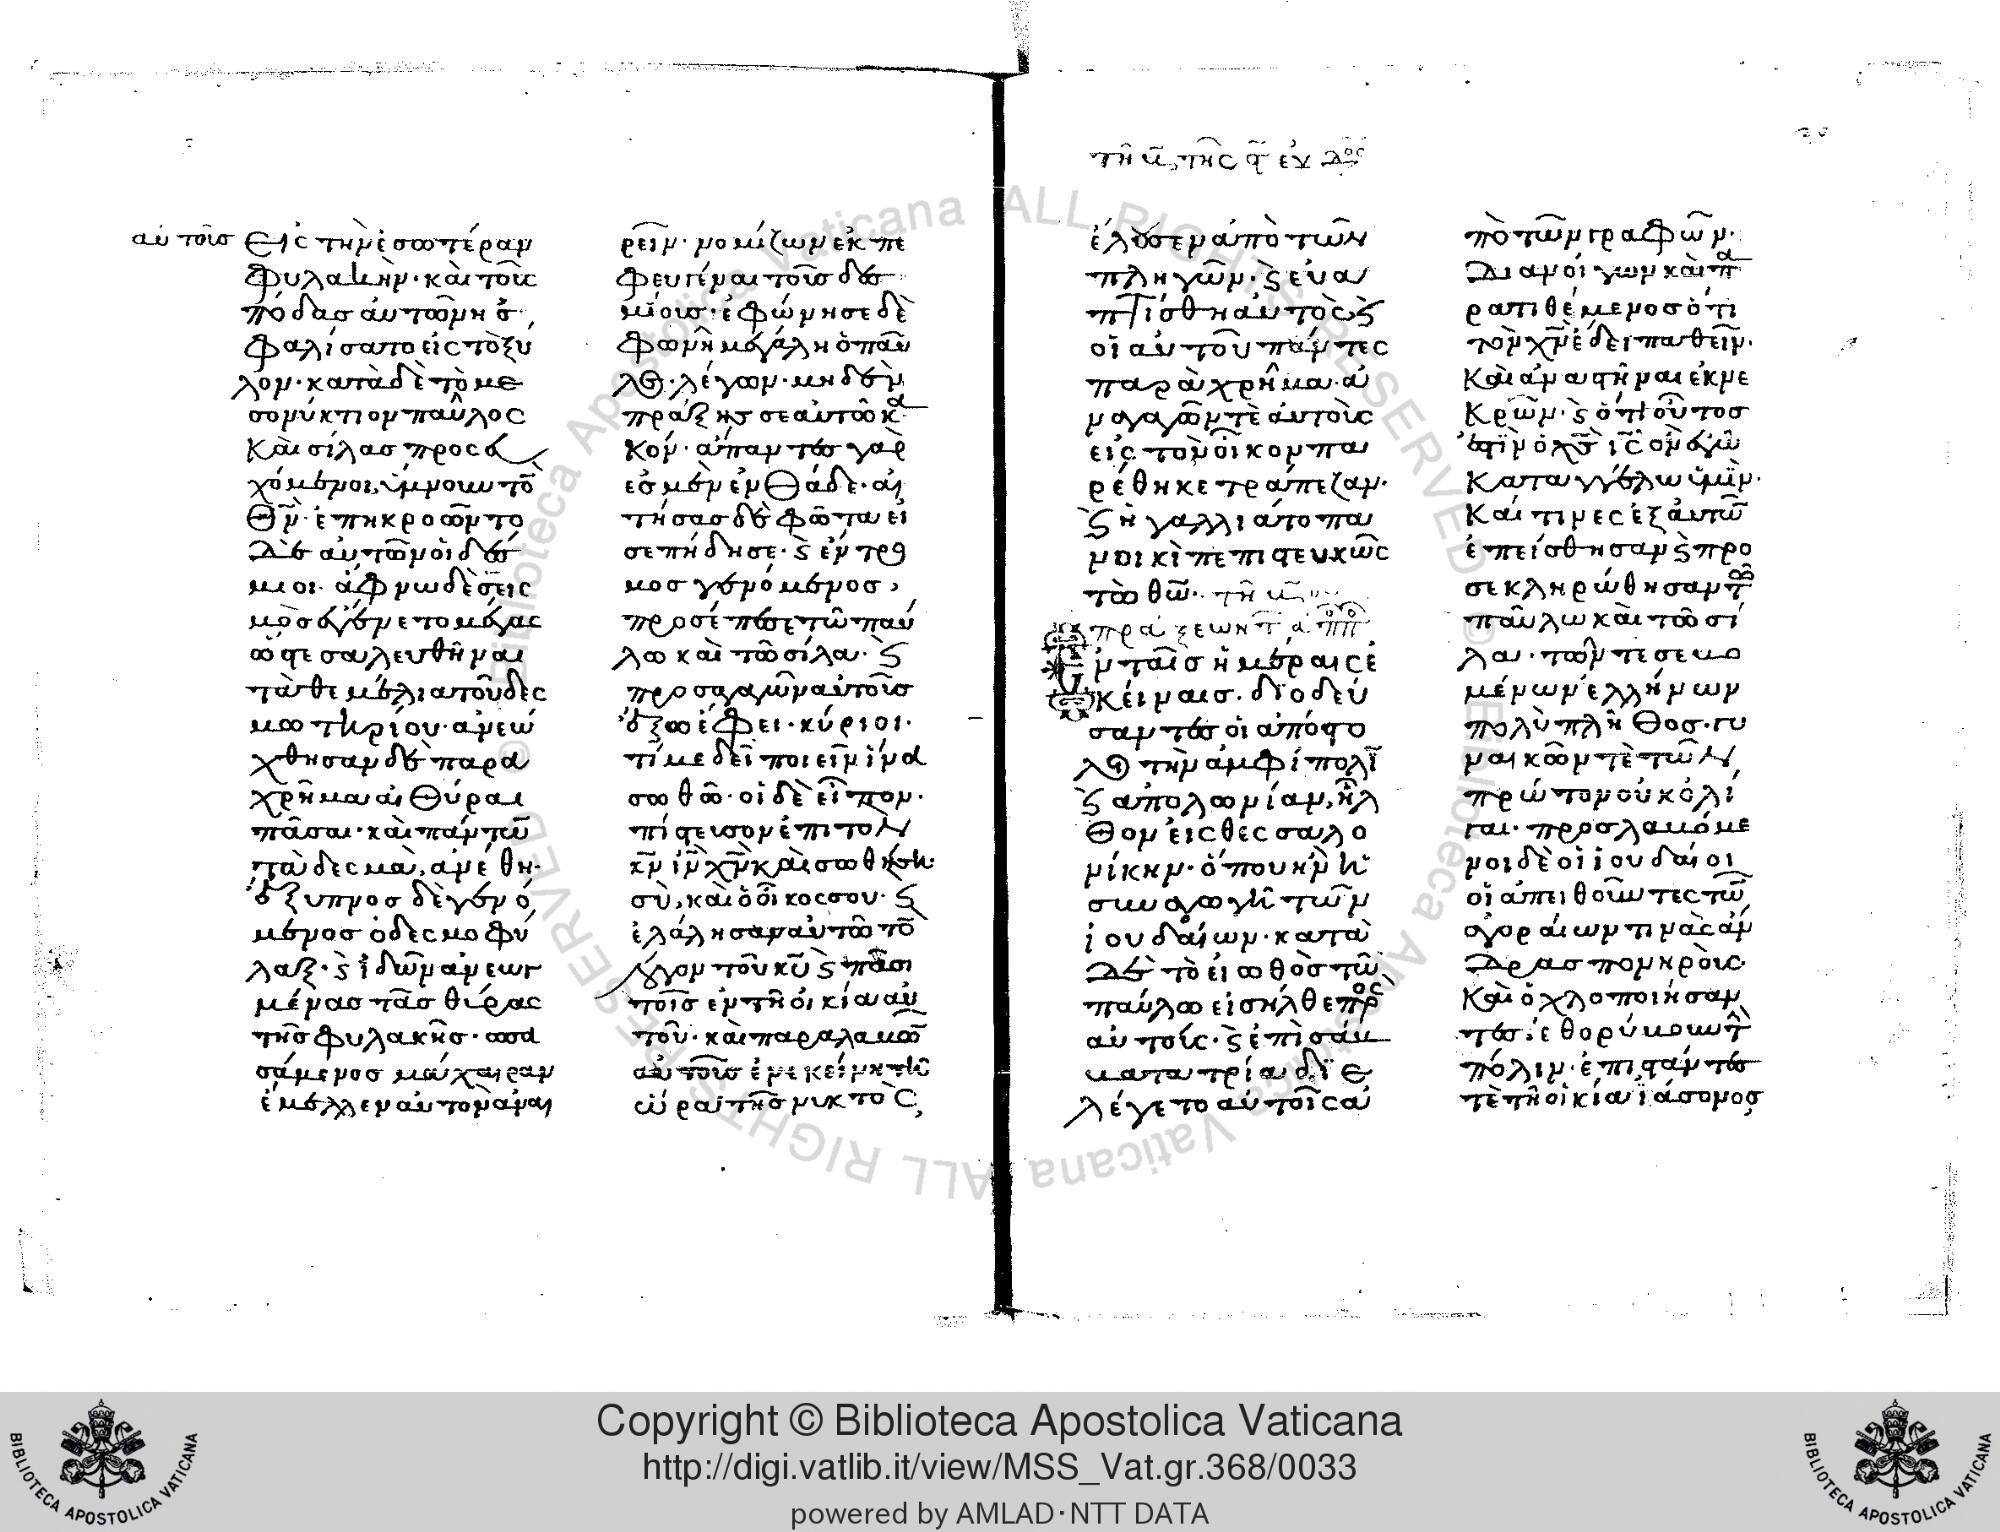 αὐτοῖσ εἰς τὴν ἐσωτέραν
φυλακὴν· καὶ τοὺς
πόδασ αὐτῶν ἠσ
φαλίσατο εἰς τὸ ξύ
λον· κατὰ δὲ τὸ με
σονύκτιον παῦλος
Καὶ σίλασ προσευ
χόμενοι, ὕμνουν τὸν
θν̄· ἐπηκροῶντο
δὲ αὐτῶν οἱ δέσ
μιοι· ἄφνω δὲ σεις
μὸσ ἐγένετο μέγας
ὥστε σαλευθῆναι
τὰ θεμέλια τοῦ δες
μωτηρίου· ἀνεώ
χθησαν δὲ παρα
χρῆμα αἱ θύραι
πᾶσαι· καὶ πάντων
τὰ δεςμὰ, ἀνέθη·
ἔξυπνοσ δὲ γενό
μενοσ ὁ δεςμοφύ
λαξ· ϛ ἰδὼν ἀνεωγ
μένασ τὰσ θύρας
τῆσ φυλακῆσ· σπα
σάμενοσ μάχαιραν
ἔμελλεν αὑτὸν ἀναι
ρεῖν· νομίζων ἐκπε
φευγέναι τοὺσ δεσ
μίους· ἐφώνησε δὲ
φωνῆ μεγάλη ὁ παῦ
λος· λέγων· μηδὲν
πράξησ σεαυτῶ κα
κόν· ἅπαντεσ γάρ
ἐσμεν ἐνθάδε· αἰ
τήσασ δὲ φῶτα εἰ
σεπήδησε· ϛ ἔντρο
μοσ γενόμενοσ,
προσέπεσε τῶ παύ
λω καὶ τῶ σίλα· ϛ
προσαγαγὼν αὐτοὺσ
ἔξω ἔφει· κύριοι·
τί με δεῖ ποιεῖν ἵνα
σωθῶ· οἱ δὲ εἶπον·
πίστευσον ἐπὶ τὸν
κν̄ ιν̄ χν̄ καὶ σωθήση·
σὺ, καὶ ὁ οἶκοςσου· ϛ
ἐλάλησαν αὐτῶ τὸν
λόγον τοῦ κῡ ϛ πᾶσι
τοῖσ ἐν τῆ οἰκία αὐ
τοῦ· καὶ παραλαβὼν
αὐτοὺσ ἐν ἐκείνη τῆ
ὥρα τῆσ νυκτὸς,
τῆ τῆς ἐκ
ἔλουσεν ἀπὸ τῶν
πληγῶν· ϛ ἐβα
πτίσθη αὐτὸς ϛ
οἱ αὐτοῦ πάντες
παραχρῆμα· ἀ
ναγαγών τὲ αὐτοὺς
εἰς τὸν οἶκον πα
ρέθηκε τράπεζαν·
ϛ ἠγαλλιάτο πα
νοικὶ πεπιστευκὼς
τῶ θω̄· τῆ
πράξεων τ ἀπ
Ἐν ταῖσ ἡμέραις ἐ
κείναισ· διοδεύ
σαντεσ οἱ ἀπόστο
λοι τὴν ἀμφίπολῖ
ϛ ἀπολωνίαν, ἦλ
θον εἰς θεςσαλο
νίκην· ὅπου ἦν ἡ
συναγωγὴ τῶν
ἰουδαίων· κατὰ
δὲ τὸ εἰωθὸσ τῶ
παύλω εἰσῆλθε πρὸς
αὐτούς· ϛ ἐπὶ σάβ
βατα τρία διε
λέγετο αὐτοῖς ἀ
πὸ τῶν γραφῶν·
διανοίγων καὶ πα
ρατιθέμενοσ ὅτι
τὸν χν̄ ἔδει παθεῖν·
Καὶ ἀναστῆναι ἐκ νε
Κρῶν· ϛ ὅτι οὗτοσ
ἐστὶν ὁ χς̄ ις̄ ὃν ἐγὼ
Καταγγέλω ὑμῖν·
Καί τινες ἐξ αὐτῶν
ἐπείσθησαν ϛ προ
σεκληρώθησαν τῶ
παύλω καὶ τῶ σί
λα· τῶν τε σεβο
μένων ἑλλήνων
πολὺ πλῆθοσ· γυ
ναικῶν τὲ τῶν
πρώτων οὐκ ὀλί
γαι· προσλαβόμε
νοι δὲ οἱ ἰουδαίοι
οἱ ἀπειθοῦντες τῶν
ἀγοραίων τινὰς ἄν
δρασ πονηρούς·
Καὶ ὀχλοποιήσαν
τεσ, ἐθορύβουν τὴν
πόλιν· ἐπιστάντεσ
τὲ τῆ οἰκία ἰάσονος
Copyright © Biblioteca Apostolica Vaticana
http://digi.vatlib.it/view/MSS_Vat.gr.368/0033
powered by AMLAD·NTT DATA
BIBLIOTECA APOSTOLICA VATICANA
BIBLIOTECA APOSTOLICA VATICANA